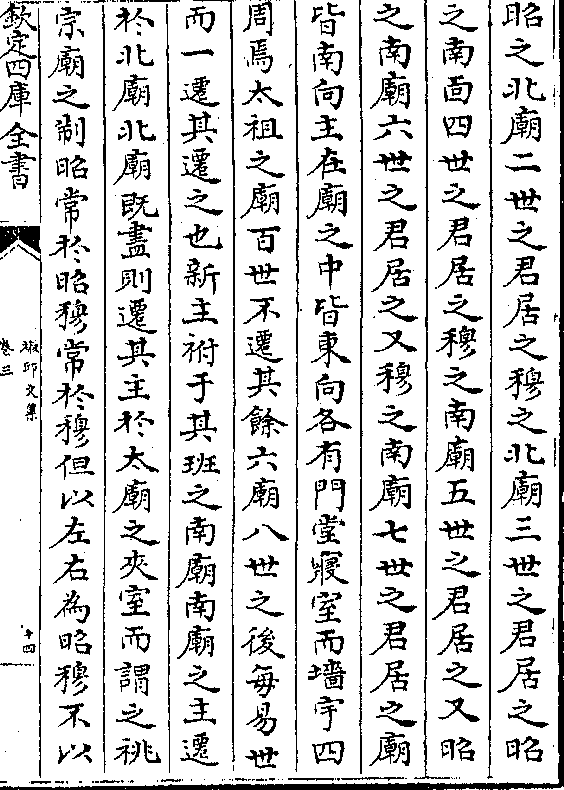 昭之北廟二世之君居之穆之北廟三世之君居之昭
之南面四世之君居之穆之南廟五世之君居之又昭
之南廟六世之君居之又穆之南廟七世之君居之廟
皆南向主在廟之中皆東向各有門堂寢室而墻宇四
周焉太祖之廟百世不遷其餘六廟八世之後每易世
而一遷其遷之也新主祔于其班之南廟南廟之主遷
於北廟北廟既盡則遷其主於太廟之夾室而謂之祧
宗廟之制昭常於昭穆常於穆但以左右為昭穆不以
欽定四庫全書
椒邱文集
卷三
十四